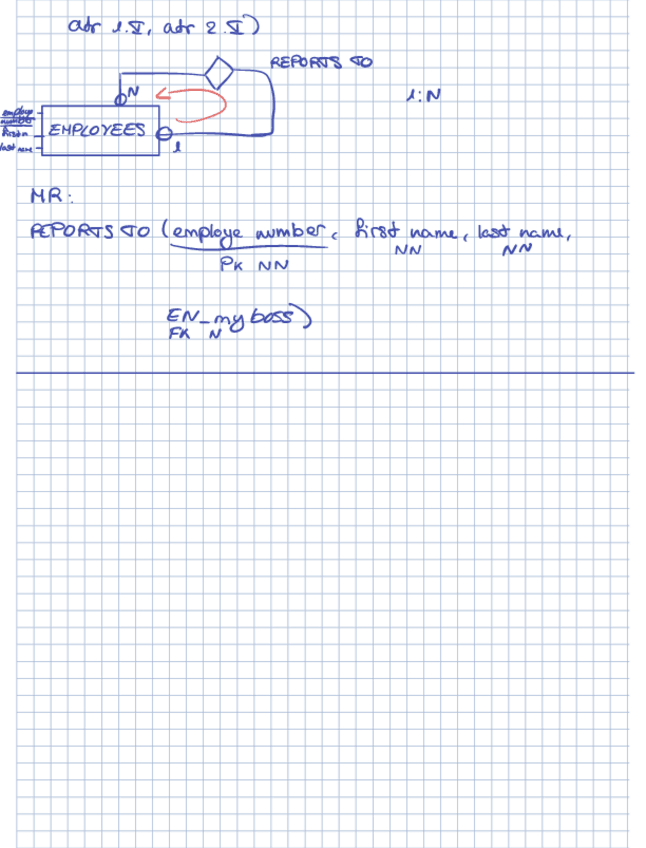 atr 1.I, atr 2.I)
REPORTS TO
N
1:N
employe
number
first n
last name
EMPLOYEES
1
MR:
REPORTS TO (employe number, first name, last name,
PK NN NN NN
EN_my boss)
FK N